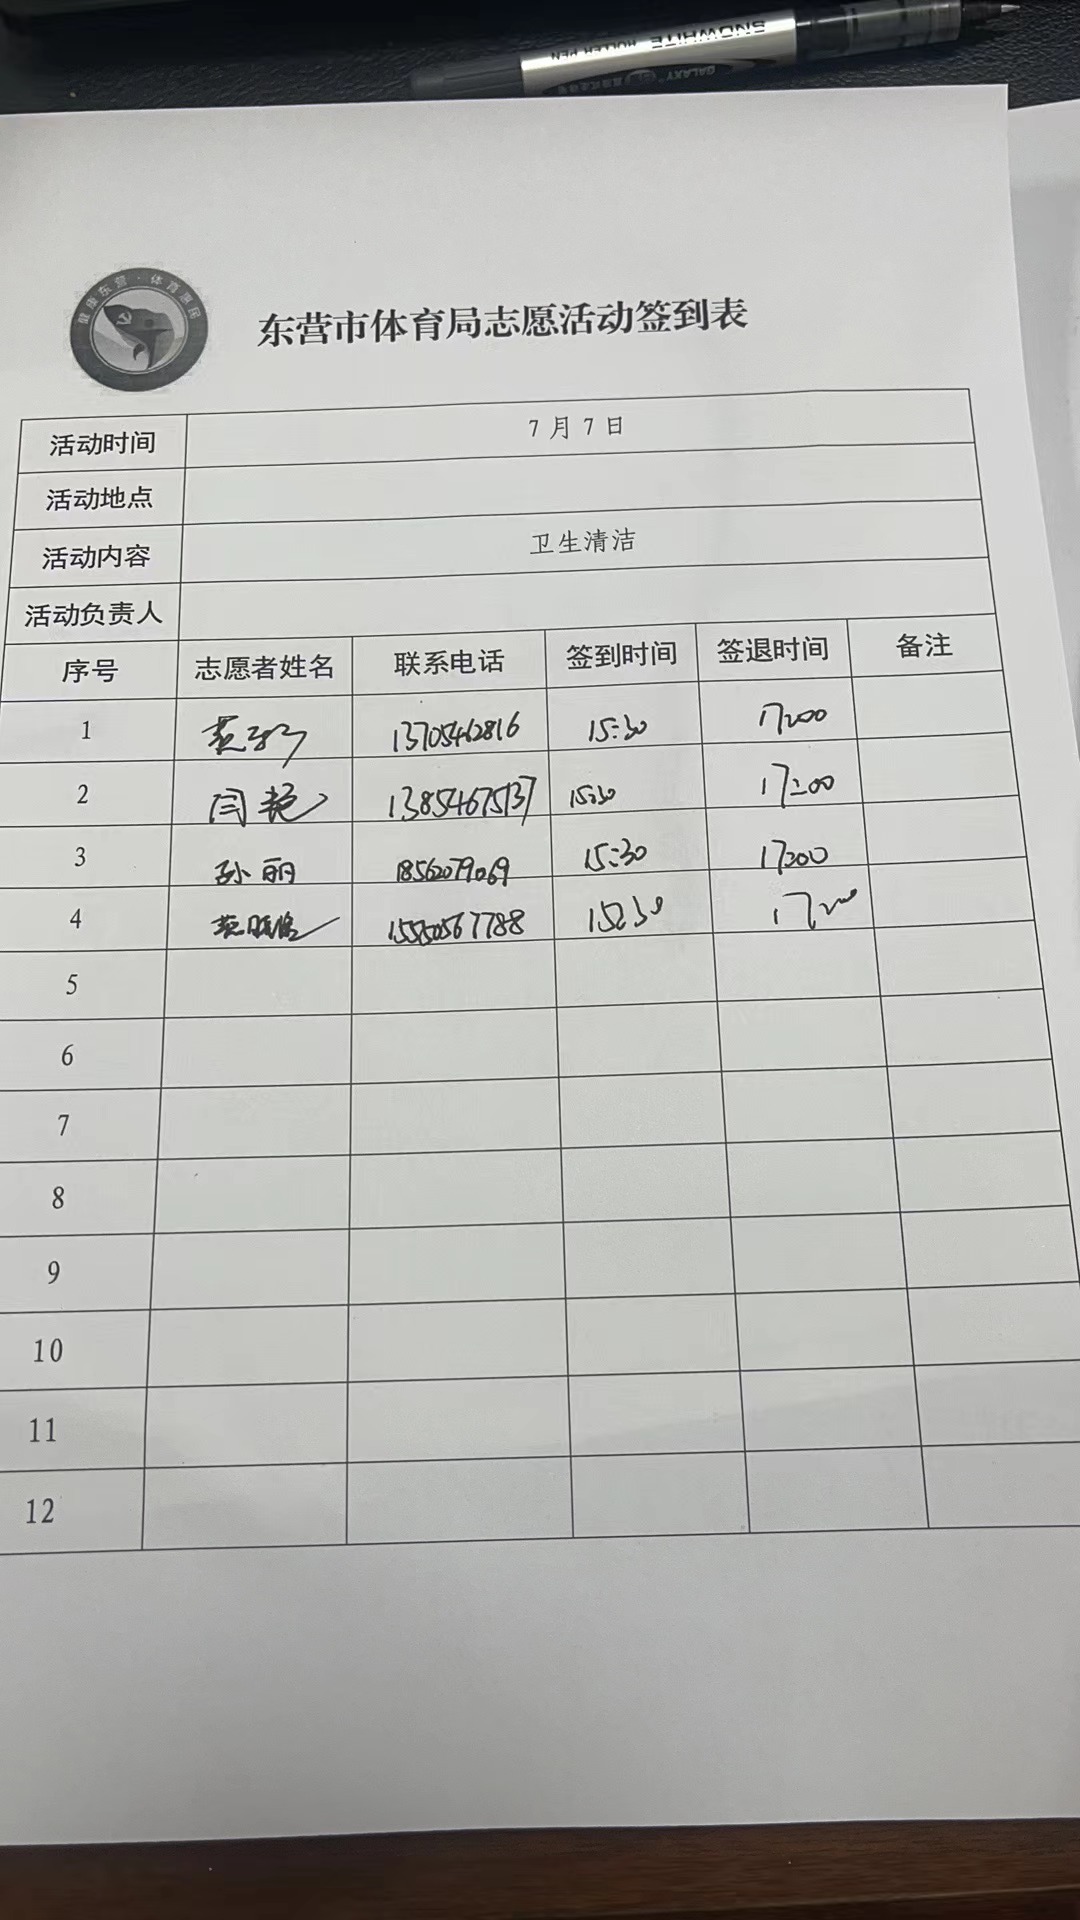 SNOWHITE ROLLER PEN
GALAXY
健康东营·体育惠民
东营市体育局志愿活动签到表
活动时间 7月7日
活动地点
活动内容 卫生清洁
活动负责人
序号 志愿者姓名 联系电话 签到时间 签退时间 备注
1 13705462816 15:30 17:00
2 闫艳 13854675137 15:30 17:00
3 孙丽 18562079069 15:30 17:00
4 15:30 17:00
5
6
7
8
9
10
11
12